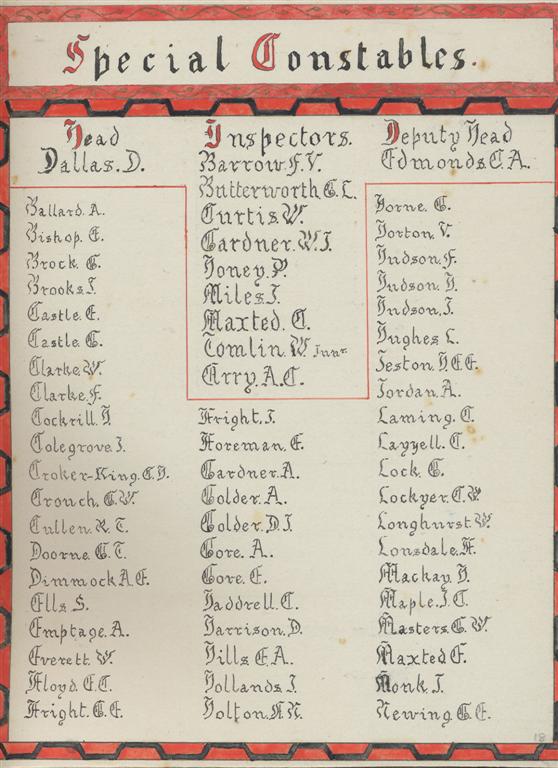 Special Constables.
Head
Dallas. D.
Ballard. A.
Bishop. E.
Brock. G.
Brooks. J.
Castle. E.
Castle. G.
Clarke. W.
Clarke. F.
Cockrill. H
Colegrove. J.
Croker-King. C.H.
Crouch. G.W.
Cullen. R. T.
Doorne. G. T.
Dimmock A. E.
Ells S.
Emptage. A.
Everett. W.
Floyd. E.C.
Fright. G. E.
Inspectors.
Barrow. F. V.
Butterworth G. L.
Curtis. W.
Gardner. W. J.
Honey. P.
Miles J.
Maxted. C.
Tomlin. W. Junr.
Urry. A. C.
Fright. J.
Foreman. E.
Gardner. A.
Golder. A.
Golder. D. J.
Gore. A.
Gore. E.
Haddrell. C.
Harrison. D.
Hills E. A.
Hollands. J.
Holton. F. N.
Deputy Head
Edmonds. C. A.
Horne. G.
Horton. V.
Hudson. F.
Hudson. H.
Hudson. J.
Hughes L.
Jeston. H.E.E.
Jordan. A.
Laming. C.
Layyell. C.
Lock. G.
Lockyer. C. W.
Longhurst. W.
Lonsdale. F.
Mackay. H.
Maple. J. C.
Masters. G. W.
Maxted E.
Monk. J.
Newing. G. E.
18